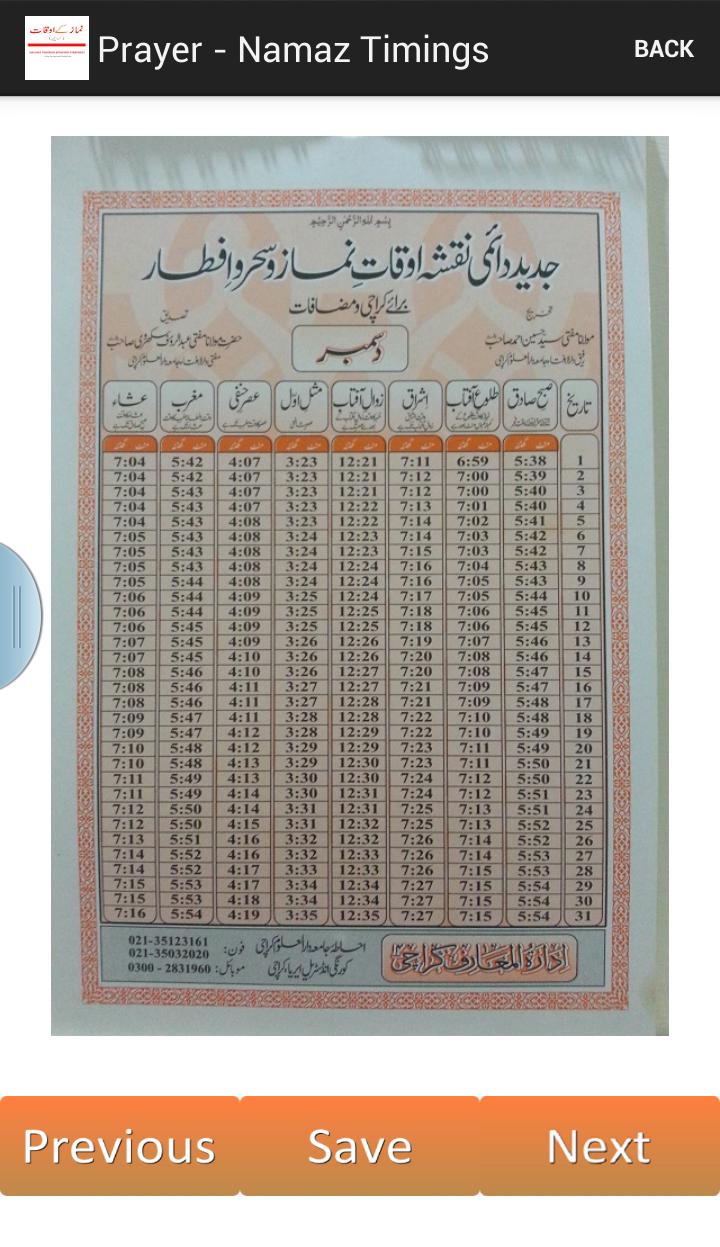 نماز کے اوقات
Prayer - Namaz Timings
BACK
بِسْمِ اللهِ الرَّحْمٰنِ الرَّحِيْمِ
جدید دائمی نقشہ اوقاتِ نماز و سحر و افطار
برائے کراچی و مضافات
تخریج
مولانا مفتی سید حسین احمد صاحب
تصدیق
حضرت مولانا مفتی عبدالرؤف سکھروی صاحب
دسمبر
تاریخ صبح صادق طلوع آفتاب اشراق زوال آفتاب مثل اوّل عصر حنفی مغرب عشاء
منٹ گھنٹہ منٹ گھنٹہ منٹ گھنٹہ منٹ گھنٹہ منٹ گھنٹہ منٹ گھنٹہ منٹ گھنٹہ منٹ گھنٹہ
1 5:38 6:59 7:11 12:21 3:23 4:07 5:42 7:04
2 5:39 7:00 7:12 12:21 3:23 4:07 5:42 7:04
3 5:40 7:00 7:12 12:21 3:23 4:07 5:43 7:04
4 5:40 7:01 7:13 12:22 3:23 4:07 5:43 7:04
5 5:41 7:02 7:14 12:22 3:23 4:08 5:43 7:04
6 5:42 7:03 7:14 12:23 3:24 4:08 5:43 7:05
7 5:42 7:03 7:15 12:23 3:24 4:08 5:43 7:05
8 5:43 7:04 7:16 12:24 3:24 4:08 5:43 7:05
9 5:43 7:05 7:16 12:24 3:24 4:08 5:44 7:05
10 5:44 7:05 7:17 12:24 3:25 4:09 5:44 7:06
11 5:45 7:06 7:18 12:25 3:25 4:09 5:44 7:06
12 5:45 7:06 7:18 12:25 3:25 4:09 5:45 7:06
13 5:46 7:07 7:19 12:26 3:26 4:09 5:45 7:07
14 5:46 7:08 7:20 12:26 3:26 4:10 5:45 7:07
15 5:47 7:08 7:20 12:27 3:26 4:10 5:46 7:08
16 5:47 7:09 7:21 12:27 3:27 4:11 5:46 7:08
17 5:48 7:09 7:21 12:28 3:27 4:11 5:46 7:08
18 5:48 7:10 7:22 12:28 3:28 4:11 5:47 7:09
19 5:49 7:10 7:22 12:29 3:28 4:12 5:47 7:09
20 5:49 7:11 7:23 12:29 3:29 4:12 5:48 7:10
21 5:50 7:11 7:23 12:30 3:29 4:13 5:48 7:10
22 5:50 7:12 7:24 12:30 3:30 4:13 5:49 7:11
23 5:51 7:12 7:24 12:31 3:30 4:14 5:49 7:11
24 5:51 7:13 7:25 12:31 3:31 4:14 5:50 7:12
25 5:52 7:13 7:25 12:32 3:31 4:15 5:50 7:12
26 5:52 7:14 7:26 12:32 3:32 4:16 5:51 7:13
27 5:53 7:14 7:26 12:33 3:32 4:16 5:52 7:14
28 5:53 7:15 7:26 12:33 3:33 4:17 5:52 7:14
29 5:54 7:15 7:27 12:34 3:34 4:17 5:53 7:15
30 5:54 7:15 7:27 12:34 3:34 4:18 5:53 7:15
31 5:54 7:15 7:27 12:35 3:35 4:19 5:54 7:16
ادارۃ المعارف کراچی
احاطہ جامعہ دارالعلوم کراچی
کورنگی انڈسٹریل ایریا، کراچی
فون: 021-35123161
021-35032020
موبائل: 0300 - 2831960
Previous
Save
Next